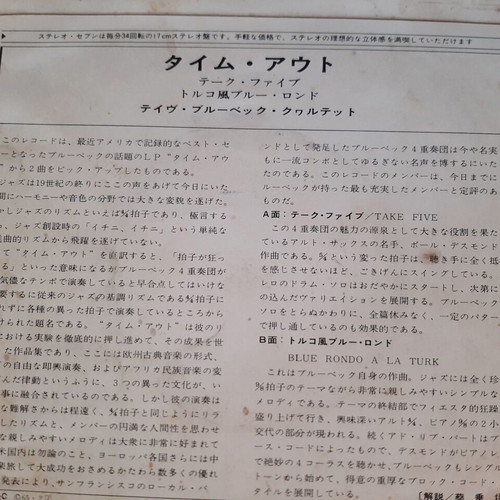 ステレオ・セブンは毎分34回転の17cmステレオ盤です。手軽な価格で、ステレオの理想的な立体感を満喫していただけます
タイム・アウト
テーク・ファイブ
トルコ風ブルー・ロンド
デイヴ・ブルーベック・クヮルテット
このレコードは、最近アメリカで記録的なベスト・セ
ーとなったブルーベックの話題のLP“タイム・アウ
から2曲をピック・アップしたものである。
ジャズは19世紀の終りにここの声をあげて今日にいた
間にハーモニーや音色の分野では大きな変貌を遂げた。
かしジャズのリズムといえば¾拍子であり、極言する
ら、ジャズ創設時の「イチニ、イチニ」という単純な
曲的リズムから飛躍を遂げていない。
て“タイム・アウト”を直訳すると、「拍子が狂っ
る」といった意味になるがブルーベック4重奏団が
気儘なテンポで演奏していると早合点してはいけな
要するに従来のジャズの基調リズムである¾拍子に
れずに各種の異った拍子で演奏しているところから
けられた題名である。“タイム・アウト”は彼のリ
における実験を徹底的に押し進めて、その成果を世
た作品集であり、ここには欧州古典音楽の形式、
の自由な即興演奏、およびアフリカ民族音楽の変
んだ律動というふうに、3つの異った文化が、い
事に融合されているのである。しかし彼の演奏は
な難解さからは程遠く、¾拍子と同じようにリラ
したリズムと、メンバーの円満な人間性を思わせ
な親しみやすいメロディは大衆に非常に好まれて
米国内は勿論のこと、ヨーロッパ各国さらには中
楽旅して大成功をおさめるかたわら数多くの優れ
発表により、サンフランシスコのローカル・バ
ンドとして発足したブルーベック4重奏団は今や名実
もに一流コンボとしてゆるぎない名声を博するにいた
たのである。このレコードのメンバーは、今日までに
ルーベックが持った最も充実したメンバーと定評のあ
ものだ。
A面：テーク・ファイブ/TAKE FIVE
この4重奏団の魅力の源泉として大きな役割を果た
いるアルト・サックスの名手、ポール・デスモンド
作曲である。⁵⁄₄という変った拍子は、聴き手に全く抵
を感じさせないほど、ごきげんにスイングしている。
レロのドラム・ソロはおだやかにスタートし、次第に
の込んだヴァリエイションを展開する。ブルーベック
ソロをとらぬかわりに、全篇休みなく、一定のパター
で押し通しているのも効果的である。
B面：トルコ風ブルー・ロンド
BLUE RONDO A LA TURK
これはブルーベック自身の作曲。ジャズには全く珍
⁹⁄₈拍子のテーマながら非常に親しみやすいシンプルな
メロディである。テーマの終結部でフィエスタ的狂躁
盛り上げて行き、興味深いアルト¾、ピアノ⁹⁄₈の2小
交代の部分が現われる。続くアド・リブ・パートはブ
ース・コードによったもので、デスモンドがピアノレ
で絶妙の4コーラスを聴かせ、ブルーベックもシングル
トーンから始めて、得意の重厚なブロック・コード・
タイルを展開している。